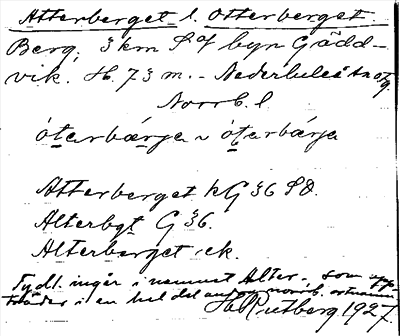 Atterberget l. Otterberget
Berg, 3 km S of byn Gädd-
vik. H. 73 m. - Nederluleå tng
Norrb. l
óterbærja ~ óterbárja
Atterberget kG 36 SO.
Alterbgt G 36.
Alterberget ek.
Tydl. ingår i namnet Alter-, som upp-
träder i en hel del andra norrb. ortnamn
H. Rutberg 1927.